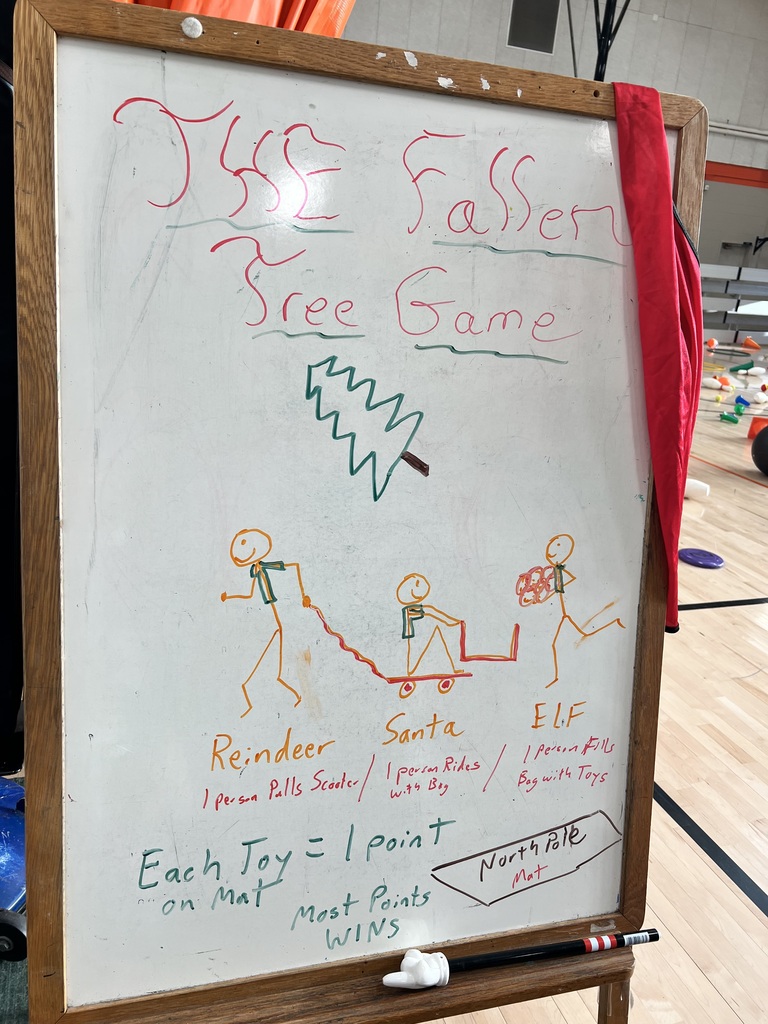 THE Fallen
Tree Game
Reindeer Santa ELF
1 person Pulls Scooter / 1 person Rides with Bag / 1 person Fills Bag with Toys
Each Toy = 1 point
on Mat
Most Points
WINS
North Pole
Mat